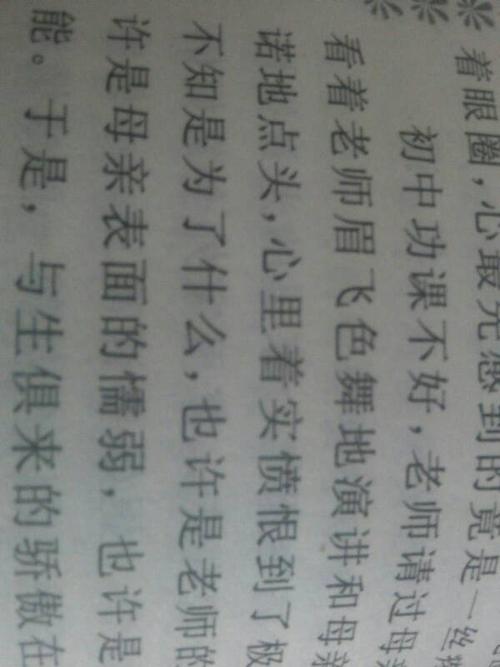 着眼圈，心最先感到的竟是一丝
初中功课不好，老师请过母亲
看着老师眉飞色舞地演讲和母亲
诺地点头，心里着实愤恨到了极
不知是为了什么，也许是老师的
许是母亲表面的懦弱，也许是
能。于是，与生俱来的骄傲在